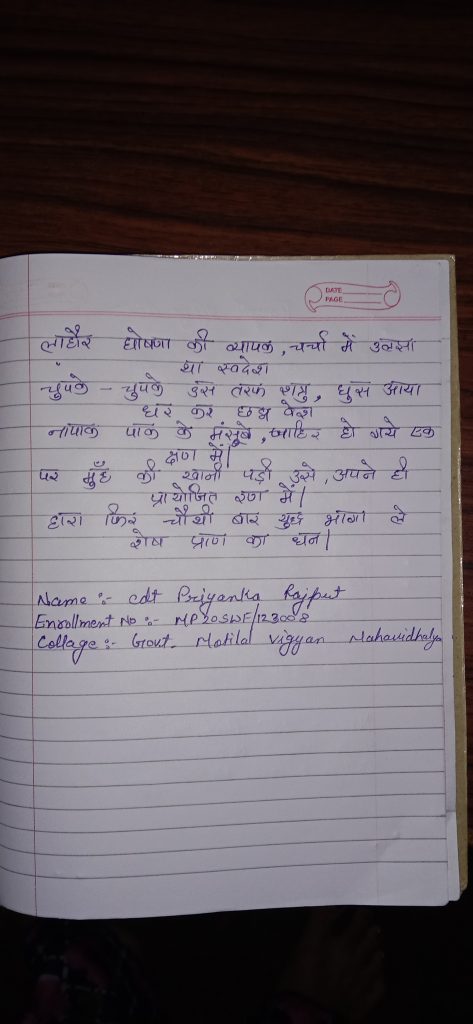 DATE
PAGE
लाहौर घोषणा की व्यापक, चर्चा में उलझा
था स्वदेश
चुपके - चुपके उस तरफ शत्रु, घुस आया
धर कर छद्म वेश
नापाक पाक के मंसूबे, जाहिर हो गये एक
क्षण में।
पर मुँह की खानी पड़ी उसे, अपने ही
प्रायोजित रण में।
हारा फिर चौथी बार युद्ध भागा ले
शेष प्राण का धन।
Name :- cdt Priyanka Rajput
Enrollment No :- MP20SWF/123008
Collage :- Govt. Motilal Vigyan Mahavidhalya